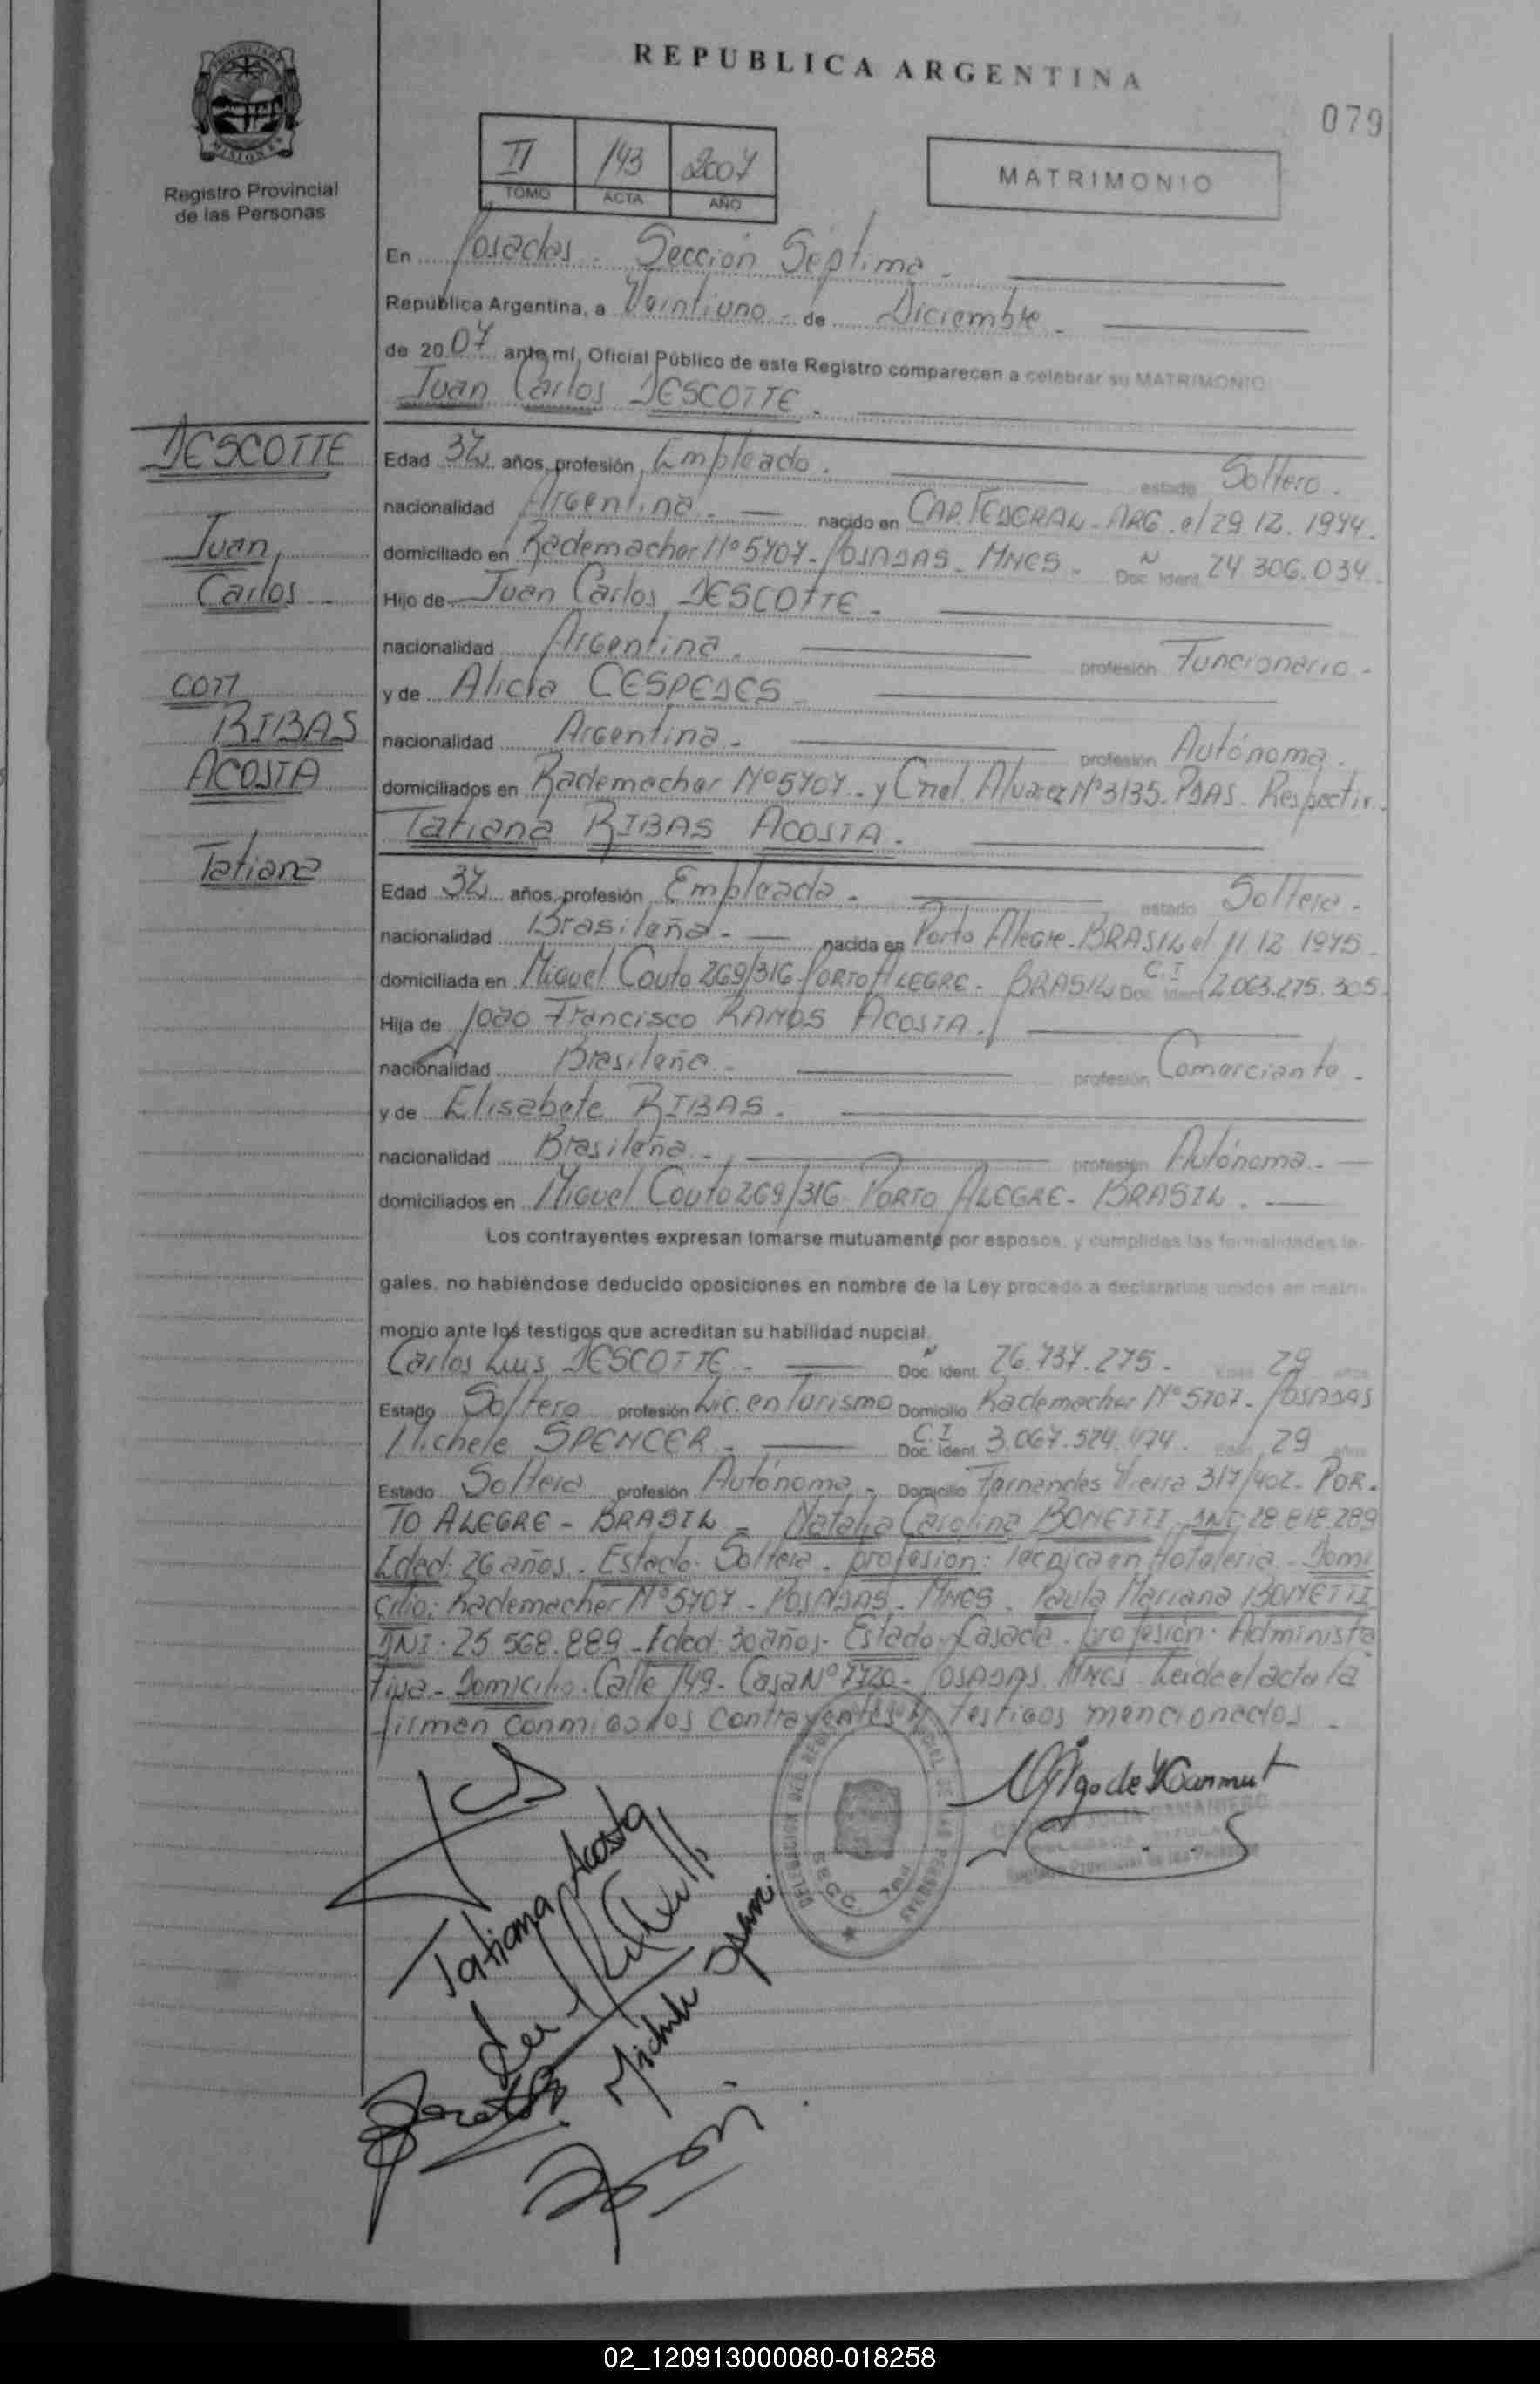 REPUBLICA ARGENTINA
079
PROVINCIA DE
MISIONES
Registro Provincial
de las Personas
II 143 2007
TOMO ACTA AÑO
MATRIMONIO
En Posadas - Sección Séptima -
República Argentina, a Veintiuno - de Diciembre -
de 2007 ante mí, Oficial Público de este Registro comparecen a celebrar su MATRIMONIO
Juan Carlos DESCOTTE -
DESCOTTE
Juan
Carlos
con
RIBAS
ACOSTA
Tatiana
Edad 32 años, profesión Empleado. estado Soltero.
nacionalidad Argentina - nacido en CAP. FEDERAL - ARG. el 29.12.1974.
domiciliado en Rademacher Nº 5707 - POSADAS - MNES - N Doc. Ident. 24 306.034.
Hijo de Juan Carlos DESCOTTE -
nacionalidad Argentina. profesión Funcionario -
y de Alicia CESPEDES -
nacionalidad Argentina - profesión Autónoma.
domiciliados en Rademacher Nº 5707 - y Cnel. Alvarez Nº 3135 - PDAS - Respectiv.
Tatiana RIBAS ACOSTA -
Edad 32 años, profesión Empleada - estado Soltera -
nacionalidad Brasileña - nacida en Porto Alegre - BRASIL el 11.12.1975 -
domiciliada en Miguel Couto 269/316 - PORTO ALEGRE - BRASIL C.I Doc. Ident. 2.063.275.305.
Hija de João Francisco RAMOS ACOSTA.
nacionalidad Brasileña - profesión Comerciante -
y de Elisabete RIBAS -
nacionalidad Brasileña - profesión Autónoma -
domiciliados en Miguel Couto 269/316 - PORTO ALEGRE - BRASIL.
Los contrayentes expresan tomarse mutuamente por esposos, y cumplidas las formalidades le-
gales, no habiéndose deducido oposiciones en nombre de la Ley procedo a declararlos unidos en matri-
monio ante los testigos que acreditan su habilidad nupcial.
Carlos Luis DESCOTTE - N Doc. Ident. 26.737.275 - Edad 29 años
Estado Soltero profesión Lic. en Turismo Domicilio Rademacher Nº 5707 - POSADAS
Michele SPENCER - C.I Doc. Ident. 3.067.524.474. Edad 29 años
Estado Soltera profesión Autónoma - Domicilio Fernandes Vieira 317/402 - POR-
TO ALEGRE - BRASIL - Natalia Carolina BONETTI DNI 28 818 289
Edad: 26 años - Estado: Soltera - profesión: Tecnica en Hotelería - Domi
cilio: Rademacher Nº 5707 - POSADAS - MNES - Paula Mariana BONETTI
DNI: 25.568.889 - Edad: 30 años - Estado: Casada - profesión: Administra
tiva - Domicilio: Calle 149 - Casa Nº 7720 - POSADAS MNES Leida el acta la
firman conmigo los contrayentes y testigos mencionados -
Tatiana Acosta
Michele Spencer
SECC. 7ma
Registro Provincial de las Personas
02_120913000080-018258